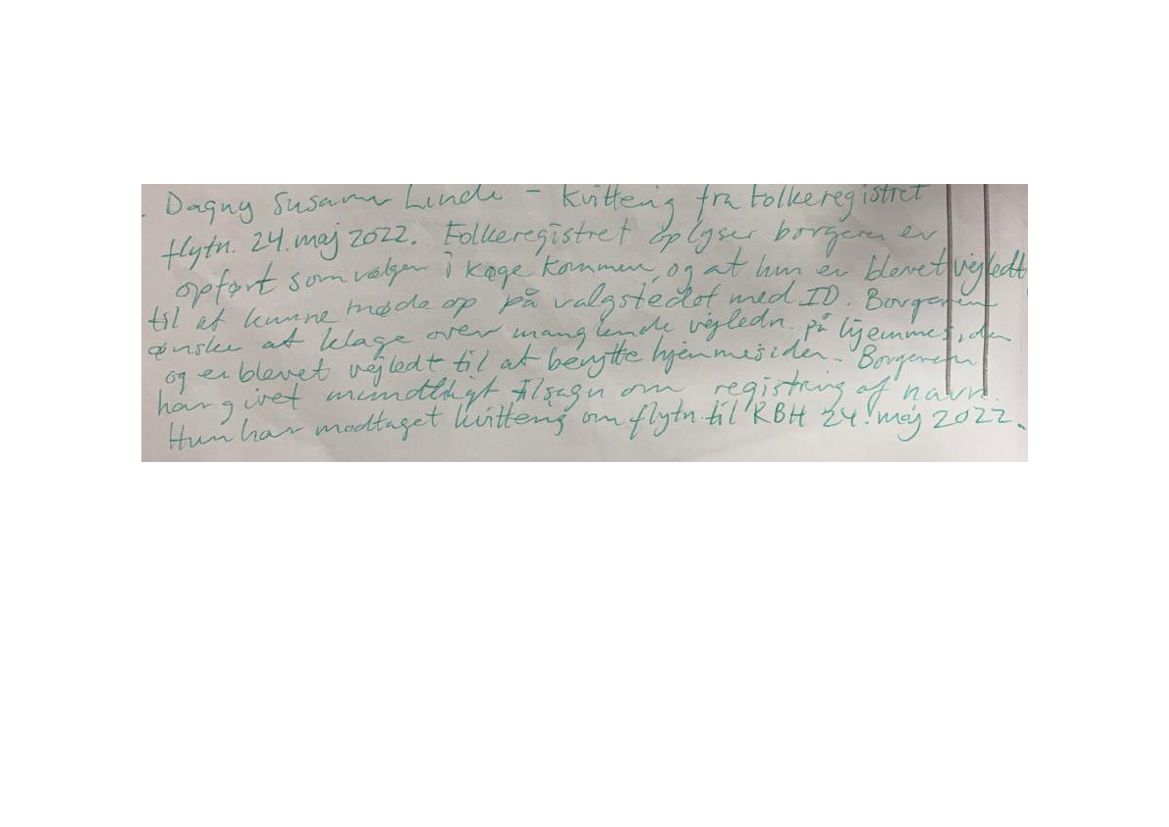 Dagny Susanne Linde - Kvittering fra Folkeregistret
flytn. 24. maj 2022. Folkeregistret oplyser borgeren er
opført som vælger i Køge Kommune, og at hun er blevet vejledt
til at kunne møde op på valgstedet med ID. Borgeren
ønsker at klage over manglende vejledn. på hjemmesiden
og er blevet vejledt til at benytte hjemmesiden. Borgeren
har givet mundtligt tilsagn om registring af navn.
Hun har modtaget kvittering om flytn. til KBH 24. maj 2022.